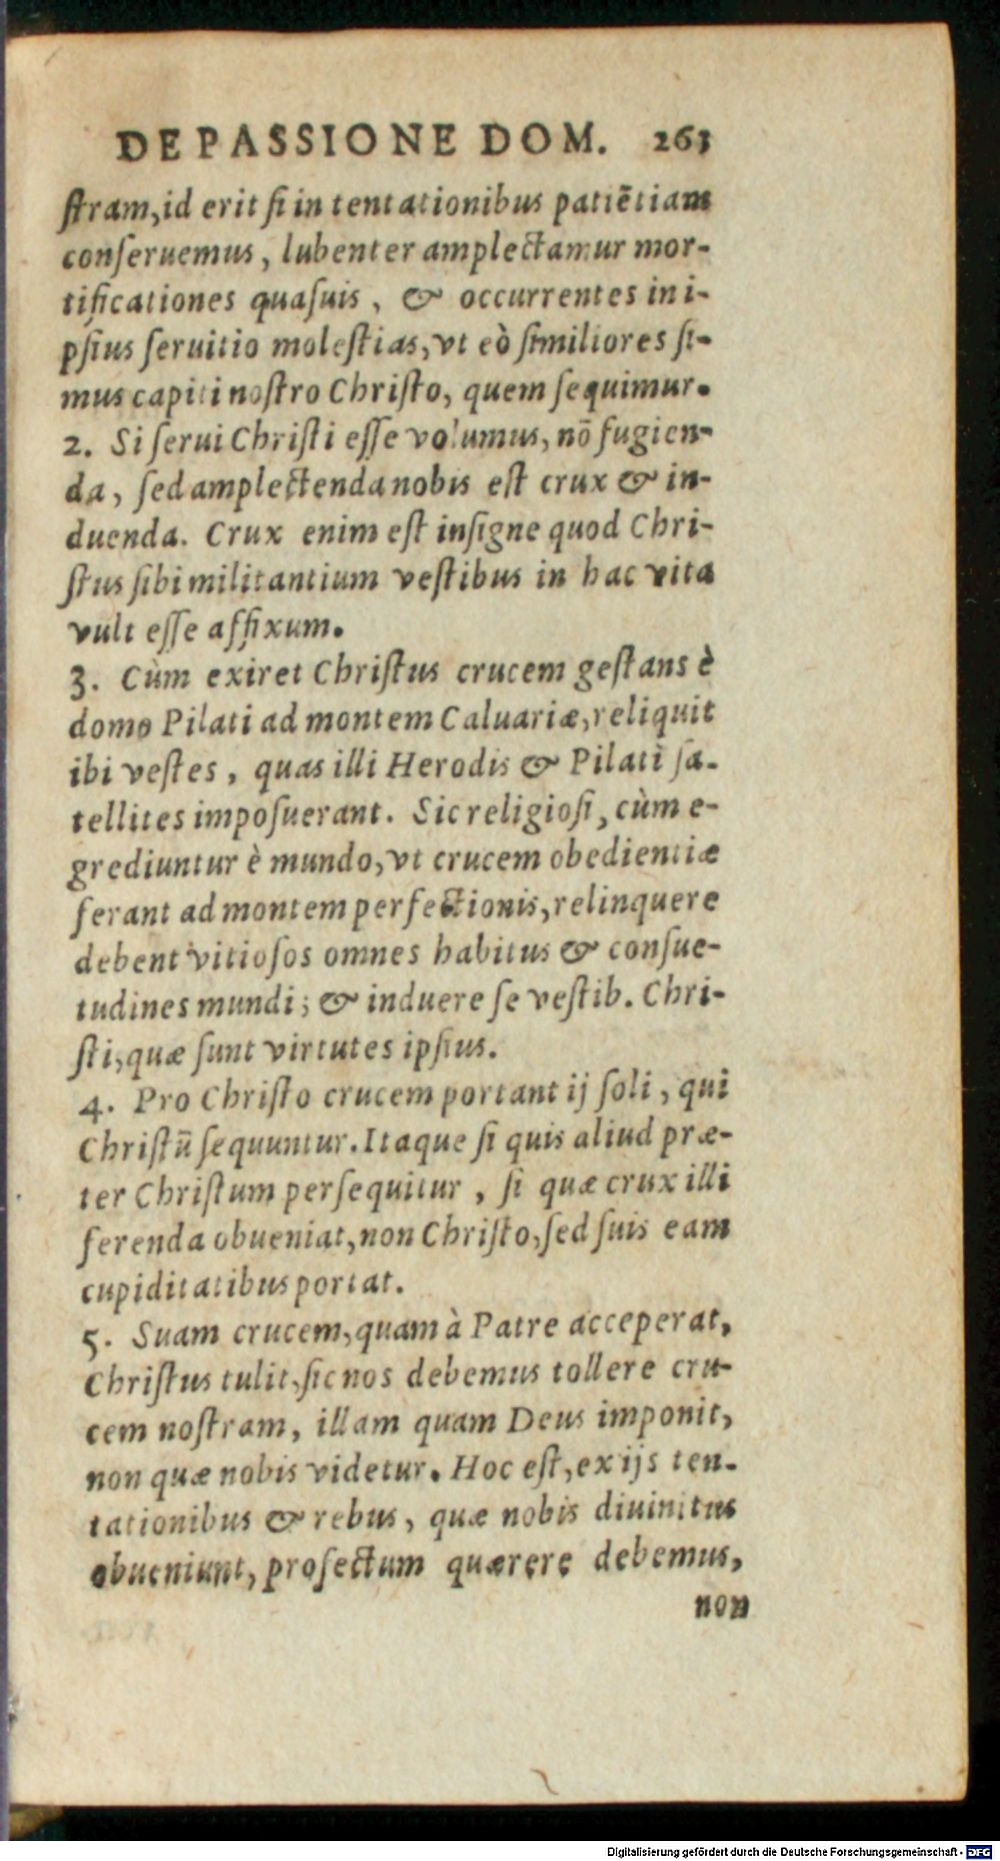 DE PASSIONE DOM. 263
ſtram, id erit ſi in tentationibus patiētiam
conſeruemus, lubenter amplectamur mor-
tificationes quaſuis, & occurrentes in i-
pſius ſeruitio moleſtias, vt eò ſimiliores ſi-
mus capiti noſtro Chriſto, quem ſequimur.
2. Si ſerui Chriſti eſſe volumus, nō fugien-
da, ſed amplectenda nobis eſt crux & in-
duenda. Crux enim eſt inſigne quod Chri-
ſtus ſibi militantium veſtibus in hac vita
vult eſſe affixum.
3. Cùm exiret Chriſtus crucem geſtans è
domo Pilati ad montem Caluariæ, reliquit
ibi veſtes, quas illi Herodis & Pilati ſa-
tellites impoſuerant. Sic religioſi, cùm e-
grediuntur è mundo, vt crucem obedientiæ
ferant ad montem perfectionis, relinquere
debent vitioſos omnes habitus & conſue-
tudines mundi; & induere ſe veſtib. Chri-
ſti, quæ ſunt virtutes ipſius.
4. Pro Chriſto crucem portant ij ſoli, qui
Chriſtū ſequuntur. Itaque ſi quis aliud præ-
ter Chriſtum perſequitur, ſi quæ crux illi
ferenda obueniat, non Chriſto, ſed ſuis eam
cupiditatibus portat.
5. Suam crucem, quam à Patre acceperat,
Chriſtus tulit, ſic nos debemus tollere cru-
cem noſtram, illam quam Deus imponit,
non quæ nobis videtur. Hoc eſt, ex ijs ten-
tationibus & rebus, quæ nobis diuinitus
obueniunt, profectum quærere debemus,
non
Digitalisierung gefördert durch die Deutsche Forschungsgemeinschaft - DFG